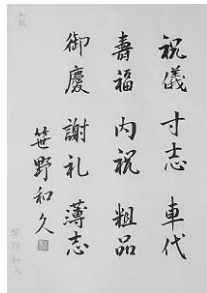 祝儀 寸志 車代
壽福 内祝 粗品
御慶 謝礼 薄志
笹野和久